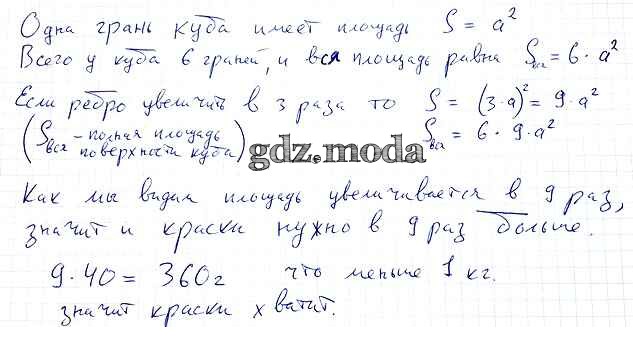 Одна грань куба имеет площадь S = a²
Всего у куба 6 граней, и вся площадь равна Sвся = 6 · a²
Если ребро увеличить в 3 раза то S = (3·a)² = 9·a²
(Sвся – полная площадь поверхности куба) Sвся = 6 · 9·a²
gdz.moda
Как мы видим площадь увеличивается в 9 раз,
значит и краски нужно в 9 раз больше.
9·40 = 360г что меньше 1 кг.
значит краски хватит.